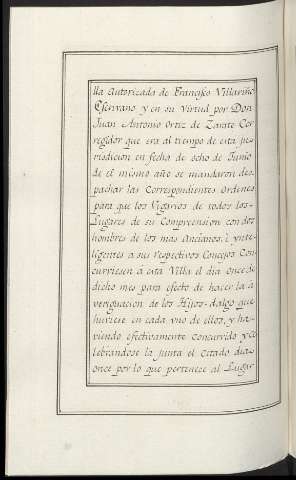 lla autorizada de Francisco Villariño
Escrivano y en su Virtud por Don
Juan Antonio Ortiz de Zarate Cor
regidor que era al tiempo de esta ju
risdicion en fecha de ocho de Junio
de el mismo año se mandaron des
pachar las Correspondientes ordenes
para que los Vigarios de todos los
Lugares de su Comprension con dos
hombres de los mas Ancianos, è ynte
ligentes a sus respectivos Concejos Con
curriesen à esta Villa el dia once de
dicho mes para efecto de hacer la a
veriguacion de los Hijos-dalgo que
huviese en cada vno de ellos, y ha
viendo efectivamente concurrido y ce
lebrandose la junta el Citado dia
once por lo que pertenece al Lugar